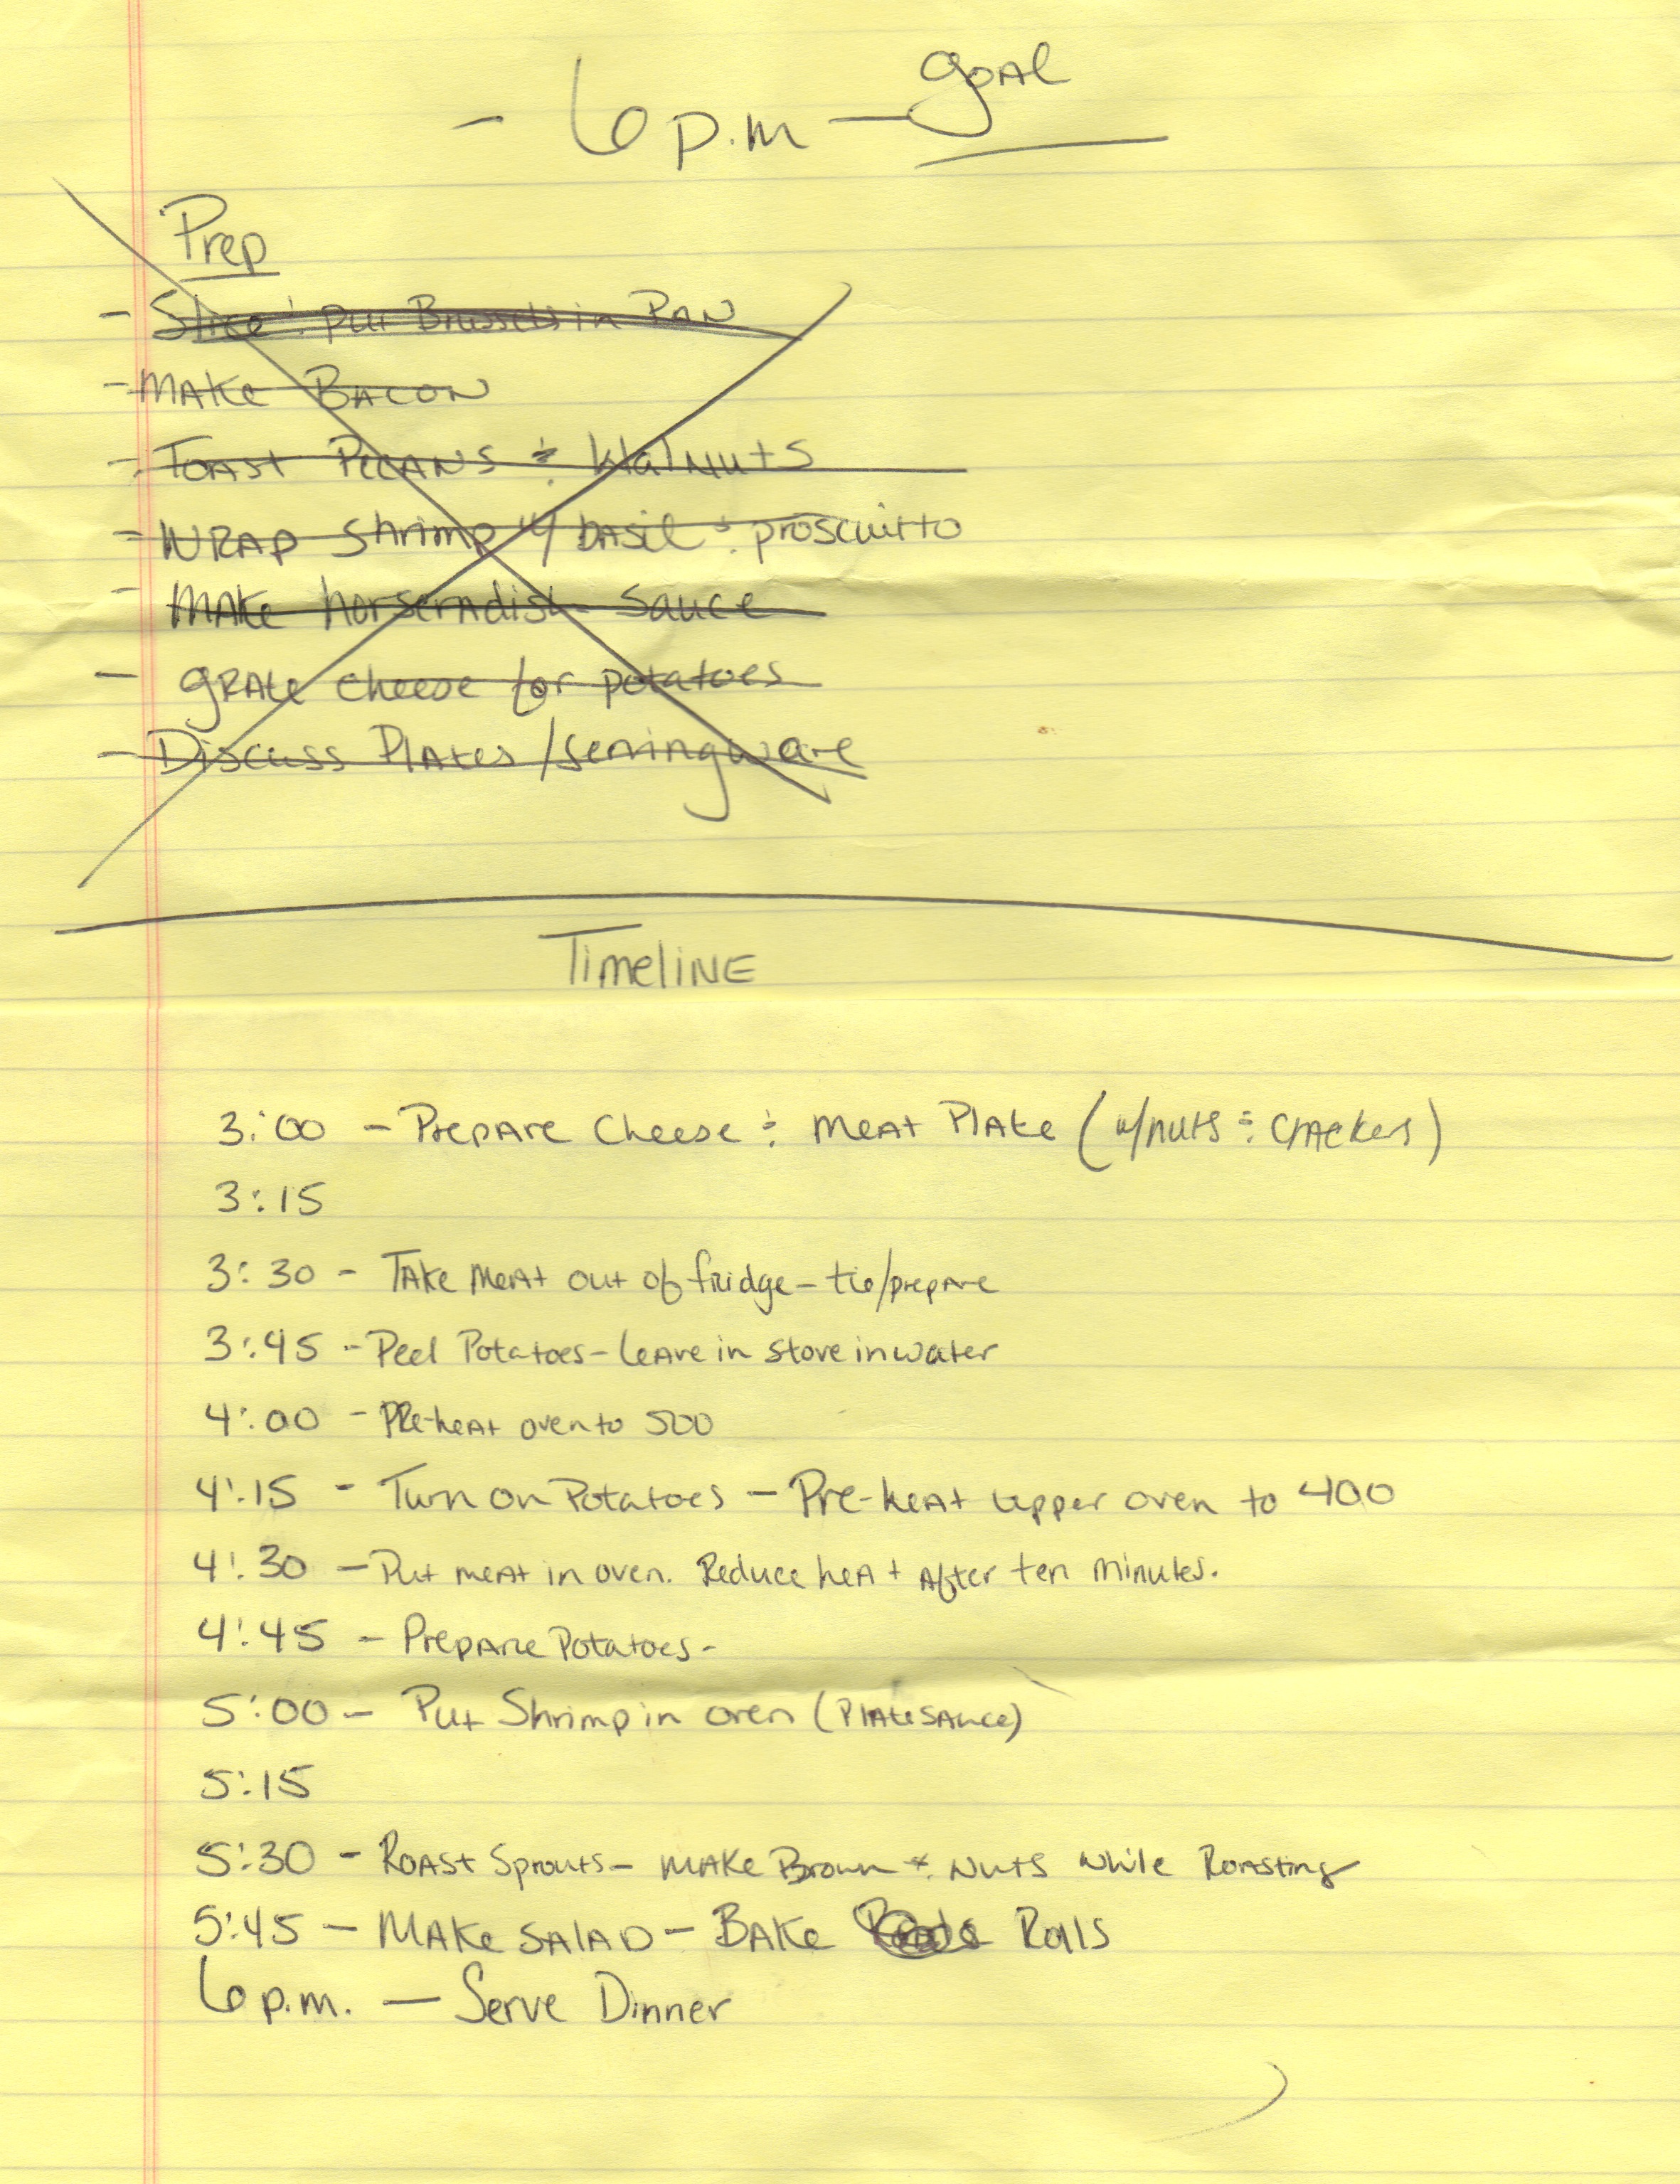 - 6 p.m - goal
Prep
- Slice & put Brussels in Pan
- Make Bacon
- Toast Pecans & Walnuts
- Wrap shrimp w/ basil & proscuitto
- Make horseradish sauce
- grate cheese for potatoes
- Discuss Plates/servingware
Timeline
3:00 - Prepare Cheese & Meat Plate (w/nuts & crackers)
3:15
3:30 - Take meat out of fridge - tie/prepare
3:45 - Peel Potatoes - leave in stove in water
4:00 - Pre-heat oven to 500
4:15 - Turn on Potatoes - Pre-heat upper oven to 400
4:30 - Put meat in oven. Reduce heat after ten minutes.
4:45 - Prepare Potatoes -
5:00 - Put Shrimp in oven (Plate sauce)
5:15
5:30 - Roast Sprouts - Make Brown & Nuts while Roasting
5:45 - Make salad - Bake Rolls
6 p.m. - Serve Dinner